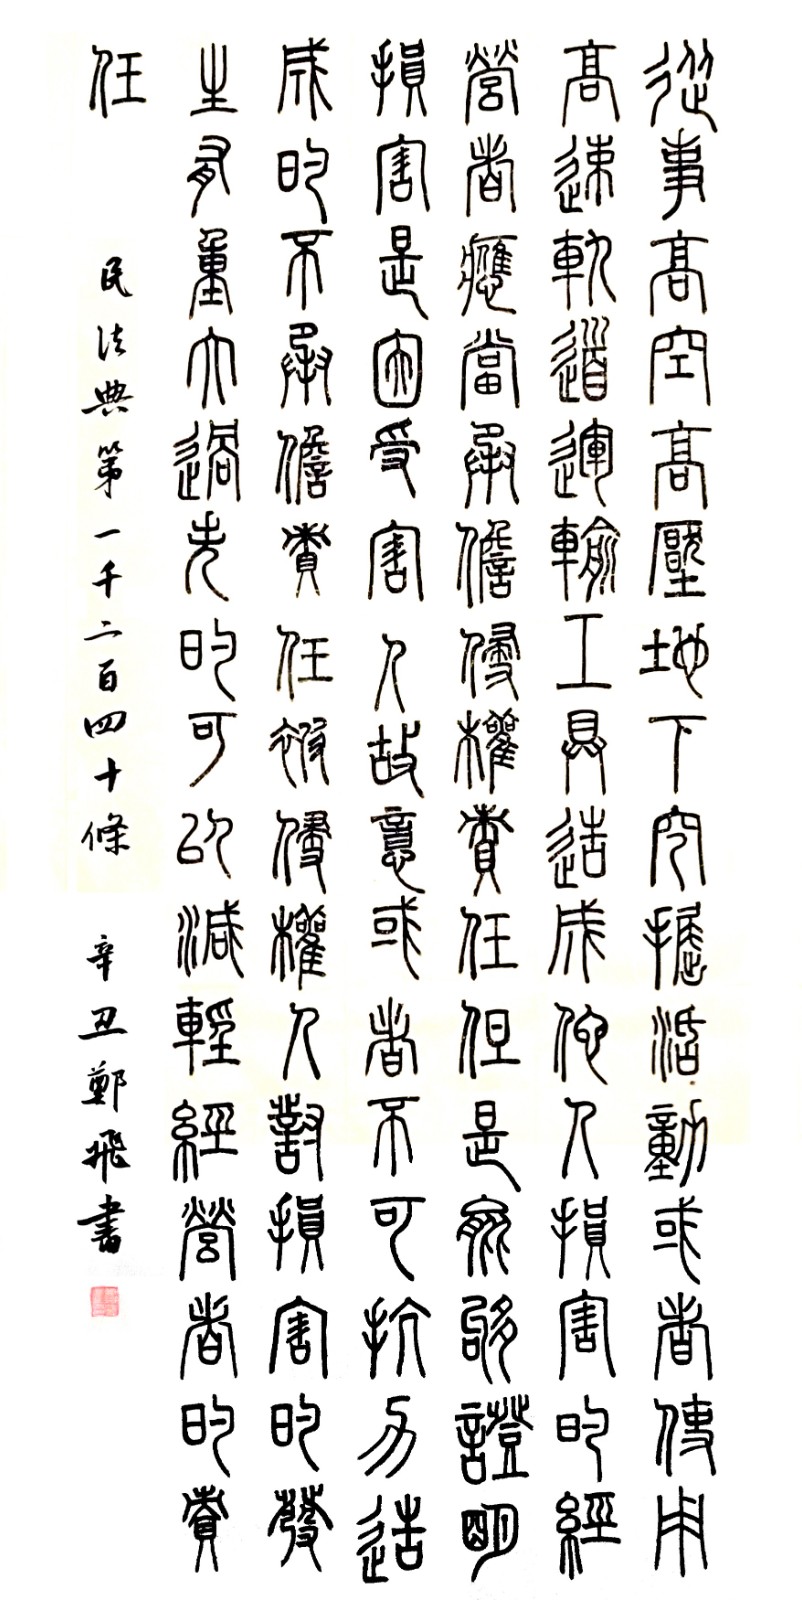 從事高空高壓地下穵掘活動或者使用
高速軌道運輸工具造成他人損害的經
營者應當承儋侵權責任但是能夠證明
損害是因受害人故意或者不可抗力造
成的不承儋責任被侵權人對損害的發
生有重大過失的可以減輕經營者的責
任
民法典第一千二百四十條 辛丑鄭飛書